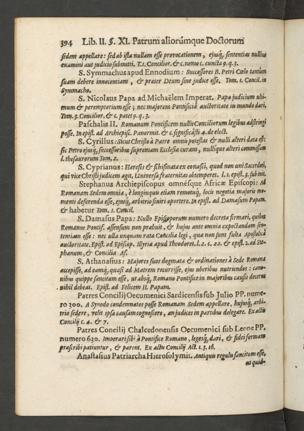 394 Lib. II. §. XI. Patrum aliorúmque Doctorum
sidem appellare: sed ab ipsa nullam esse provocationem, ejusq́; sententias nullius
examini aut judicio submitti. T.1. Concilior. & c. nemo 1. cuncta 9. q. 3.
S. Symmachus apud Ennodium: Successores B. Petri Cœlo tantùm
suam debere innocentiam, & præter Deum judices esse. Tom. 1. Concil. in
Symmacho.
S. Nicolaus Papa ad Michaëlem Imperat. Papa judicium ulti-
mum & peremptorium esse; nec majorem Pontificiâ auctoritate in mundo dari.
Tom. 3. Concilior. & c. patet 9. q. 3.
Paschalis II. Romanum Pontificem nullis Conciliorum legibus adstringi
posse. In epist. ad Archiepisc. Panormit. & c. significâsti 4. de elect.
S. Cyrillus: Sicut Christo à Patre omnis potestas & nulli alteri data est:
sic Petro ejusq́; successoribus supremam Ecclesiæ curam, nullíque alteri commissam
l. thesaurorum Tom. 2.
S. Cyprianus: Hæreses & schismata ex eo nasci, quod non uni Sacerdoti,
qui vice Christi judicem agit, Universa fraternitas obtemperet. l. 1. epist. 3. sub init.
Stephanus Archiepiscopus omnésque Africæ Episcopi: Ad
Romanam Sedem omnia, & longinqua etiam removenda, loca negotia majoris mo-
menti deferenda esse, ejusq́; arbitrio finiri oportere. In epist. ad Damasum Papam.
& habetur Tom. 1. Concil.
S. Damasus Papa: Nullo Episcoporum numero decreta firmari, quibus
Romanus Pontif. assensum non praebuit, & hujus ante omnia expectandam sen-
tentiam esse: nec ulla unquam rata Concilia legi, quæ non sunt fulta Apostolicâ
auctoritate. Epist. ad Episcop. Illyria apud Theodoret. l. 2. c. 22. & epist. 2. ad Ste-
phanum, & Concilia Af.
S. Athanasius: Majores suas dogmata & ordinationes à Sede Romana
accepisse, ad eamq́; quasi ad Matrem recurrisse, ejus uberibus nutriendos: cano-
nibus quippe sancitum esse, ut absq́; Romano Pontifice in majoribus causis decerni
nihil debeat. Epist. ad Felicem II. Papam.
Patres Concilij Oecumenici Sardicensis sub Julio PP. nume-
ro 300. A Synodo condemnato posse Romanam Sedem appellare, hujusq́; arbi-
trio federe, velit ipsa causam cognoscere, an judices in partibus delegare. Ex actu
Concilij c. 4. & 7.
Patres Concilij Chalcedonensis Oecumenici sub Leone PP.
numero 620. Innovari sibi à Pontifice Romano, leges dari, & fidei formam
præscribi patiuntur, & parent. Ex actu Concilij Act. 1. 3. 16.
Anastasius Patriarcha Hierosolymit. Antiquâ regulâ sancitum esse,
ut quid-